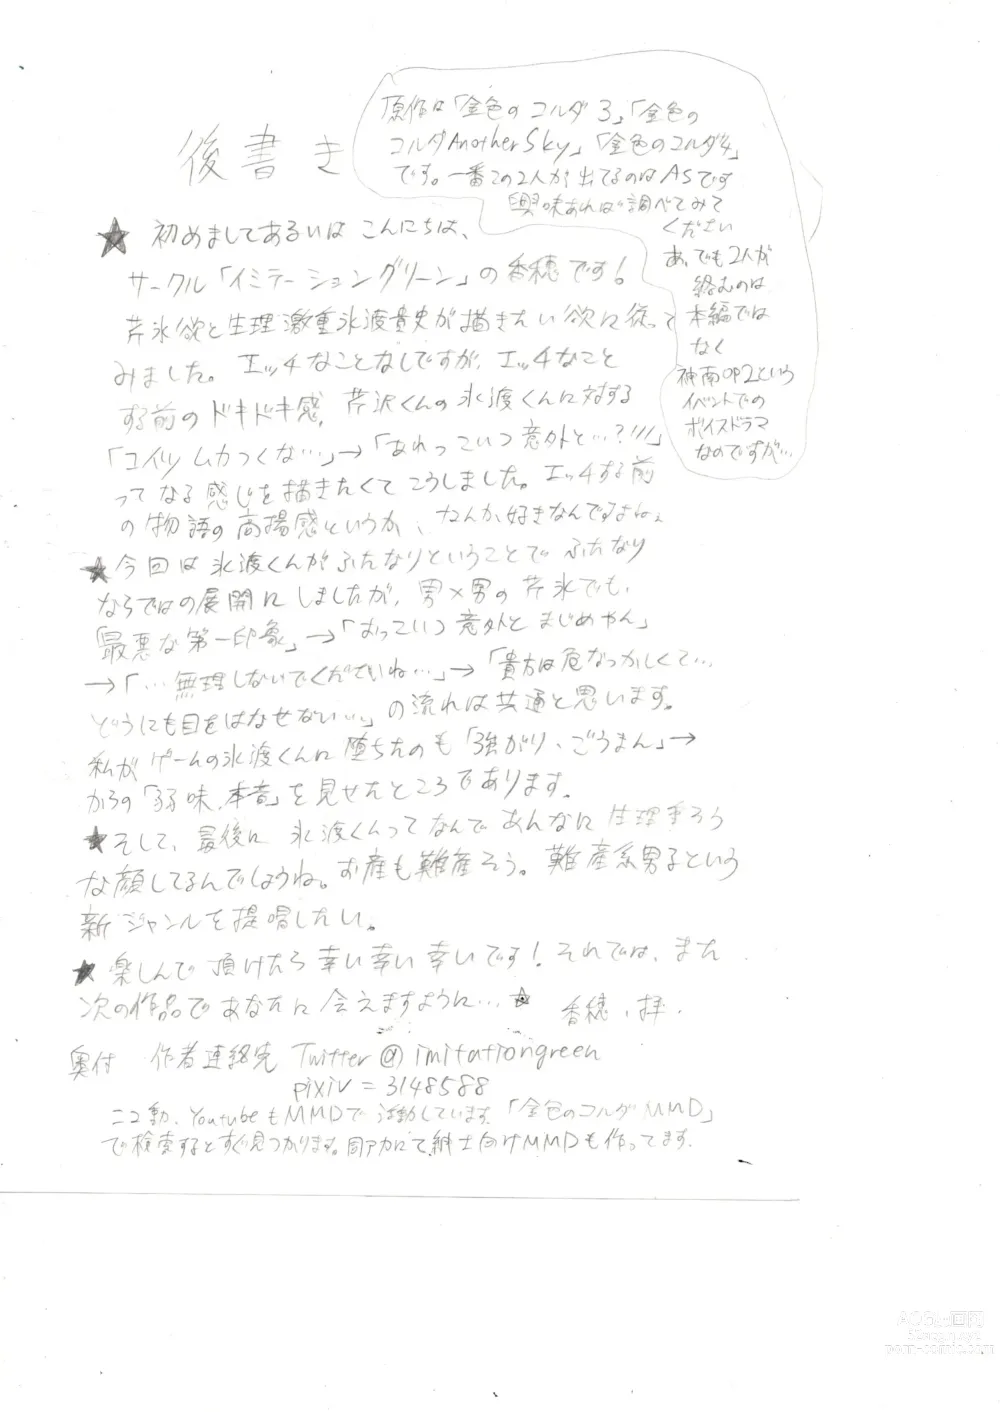 後書き
原作は「金色のコルダ3」「金色の
コルダAnotherSky」「金色のコルダ4」
です。一番この2人が出てるのはASです
興味あれば調べてみて
ください
あ、でも2人が
絡むのは
本編では
なく
神南OP2という
イベントでの
ボイスドラマ
なのですが…
★ 初めましてあるいはこんにちは、
サークル「イミテーショングリーン」の香穂です!
芹氷欲と生理激重氷渡貴史が描きたい欲に従って
みました。エッチなことなしですが、エッチなこと
する前のドキドキ感、芹沢くんの氷渡くんに対する
「コイツムカつくな…」→「あれっこいつ意外と…?!!!」
ってなる感じを描きたくてこうしました。エッチする前
の物語の高揚感というか、なんか好きなんですよね。
★今回は氷渡くんがふたなりということでふたなり
ならではの展開にしましたが、男×男の芹氷でも、
「最悪な第一印象」→「おっこいつ意外とまじめやん」
→「…無理しないでくださいね…」→「貴方は危なっかしくて…
どうにも目をはなせない…」の流れは共通と思います。
私がゲームの氷渡くんに堕ちたのも「強がり、ごうまん」→
からの「弱味、本音」を見せたところであります。
★そして、最後に氷渡くんってなんであんなに生理重そう
な顔してるんでしょうね。お産も難産そう。難産系男子という
新ジャンルを提唱したい。
★楽しんで頂けたら幸い幸い幸いです!それでは、また
次の作品であなたに会えますように…☆ 香穂、拝.
奥付 作者連絡先 Twitter@imitationgreen
pixiv=3148588
ニコ動、YoutubeもMMDで活動しています。「金色のコルダMMD」
で検索するとすぐ見つかります。同アカにて紳士向けMMDも作ってます.
porn-comic.com